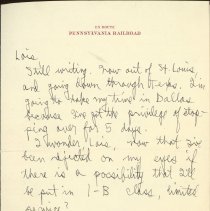 EN ROUTE
PENNSYLVANIA RAILROAD
Lois,
Still writing. Now out of St. Louis
and going down through Texas. I'm
going to take my time in Dallas
because I've got the privilege of stop-
ping over for 5 days.
I wonder Lois, now that I've
been rejected on my eyes if
there is a possibility that I'll
be put in 1-B class, limited
service?